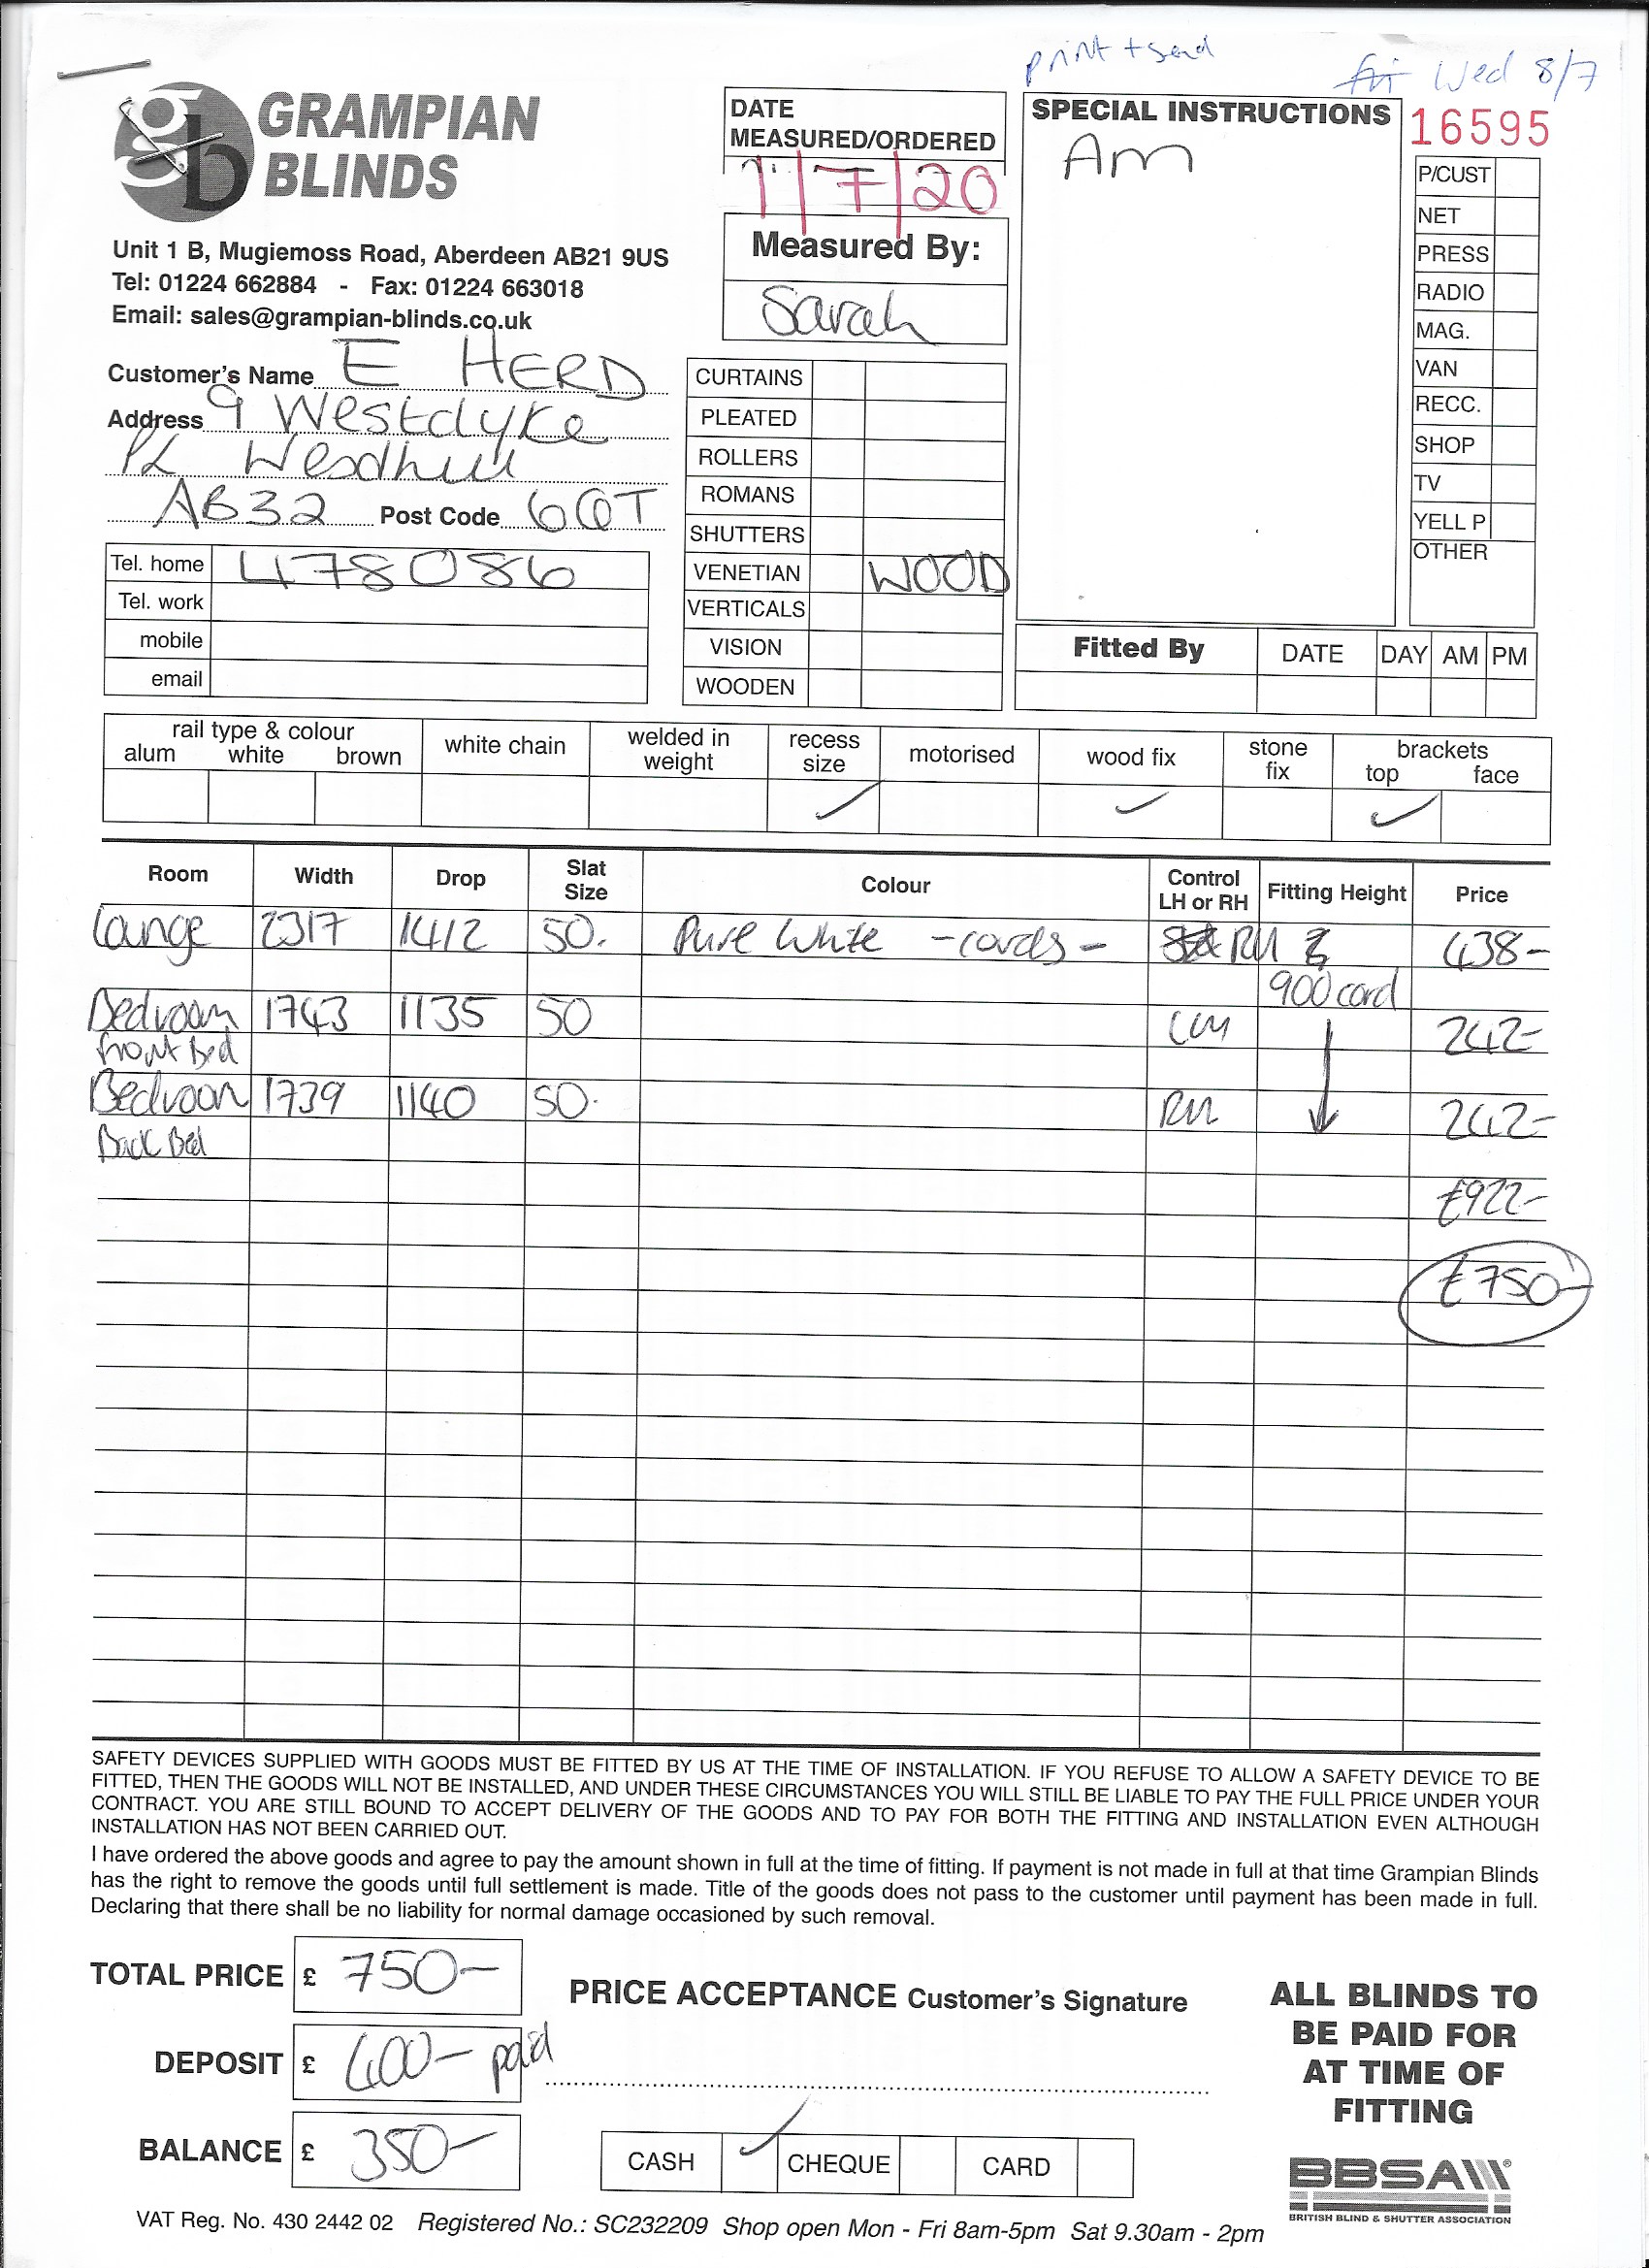 print + send
fri Wed 8/7
gb GRAMPIAN
BLINDS
Unit 1 B, Mugiemoss Road, Aberdeen AB21 9US
Tel: 01224 662884 - Fax: 01224 663018
Email: sales@grampian-blinds.co.uk
Customer's Name E HERD
Address 9 Westdyke
PL Westhill
AB32 Post Code 6QT
Tel. home 478086
Tel. work
mobile
email
DATE
MEASURED/ORDERED
1/7/20
Measured By:
Sarah
CURTAINS
PLEATED
ROLLERS
ROMANS
SHUTTERS
VENETIAN WOOD
VERTICALS
VISION
WOODEN
SPECIAL INSTRUCTIONS
Am
16595
P/CUST
NET
PRESS
RADIO
MAG.
VAN
RECC.
SHOP
TV
YELL P
OTHER
Fitted By DATE DAY AM PM
rail type & colour
alum white brown
white chain
welded in
weight
recess
size ✓
motorised
wood fix ✓
stone
fix
brackets
top face
✓
Room Width Drop Slat Size Colour Control LH or RH Fitting Height Price
Lounge 2317 1412 50. Pure White - cords - RH 438-
900 cord
Bedroom 1743 1135 50 LH 242-
front Bed
Bedroom 1739 1140 50. RH 242-
Back Bed
£922-
£750-
SAFETY DEVICES SUPPLIED WITH GOODS MUST BE FITTED BY US AT THE TIME OF INSTALLATION. IF YOU REFUSE TO ALLOW A SAFETY DEVICE TO BE
FITTED, THEN THE GOODS WILL NOT BE INSTALLED, AND UNDER THESE CIRCUMSTANCES YOU WILL STILL BE LIABLE TO PAY THE FULL PRICE UNDER YOUR
CONTRACT. YOU ARE STILL BOUND TO ACCEPT DELIVERY OF THE GOODS AND TO PAY FOR BOTH THE FITTING AND INSTALLATION EVEN ALTHOUGH
INSTALLATION HAS NOT BEEN CARRIED OUT.
I have ordered the above goods and agree to pay the amount shown in full at the time of fitting. If payment is not made in full at that time Grampian Blinds
has the right to remove the goods until full settlement is made. Title of the goods does not pass to the customer until payment has been made in full.
Declaring that there shall be no liability for normal damage occasioned by such removal.
TOTAL PRICE £ 750-
DEPOSIT £ 400- paid
BALANCE £ 350-
PRICE ACCEPTANCE Customer's Signature
CASH ✓ CHEQUE CARD
ALL BLINDS TO
BE PAID FOR
AT TIME OF
FITTING
BBSA
BRITISH BLIND & SHUTTER ASSOCIATION
VAT Reg. No. 430 2442 02 Registered No.: SC232209 Shop open Mon - Fri 8am-5pm Sat 9.30am - 2pm